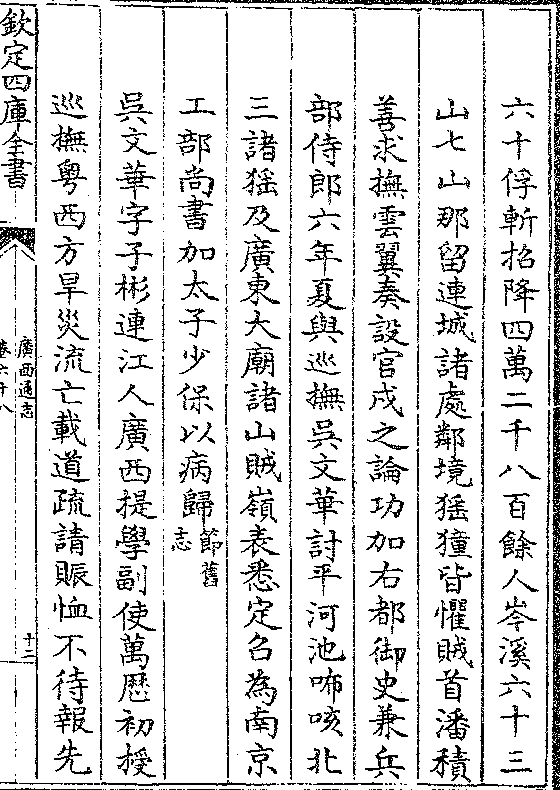 六十俘斬招降四萬二千八百餘人岑溪六十三
山七山那留連城諸處鄰境猺獞皆懼賊首潘積
善求撫雲翼奏設官戍之論功加右都御史兼兵
部侍郎六年夏與巡撫吳文華討平河池咘咳北
三諸猺及廣東大廟諸山賊嶺表悉定召為南京
工部尚書加太子少保以病歸節舊志
吳文華字子彬連江人廣西提學副使萬歷初授
巡撫粤西方旱災流亡載道疏請賑恤不待報先
欽定四庫全書
廣西通志
卷六十八
十二